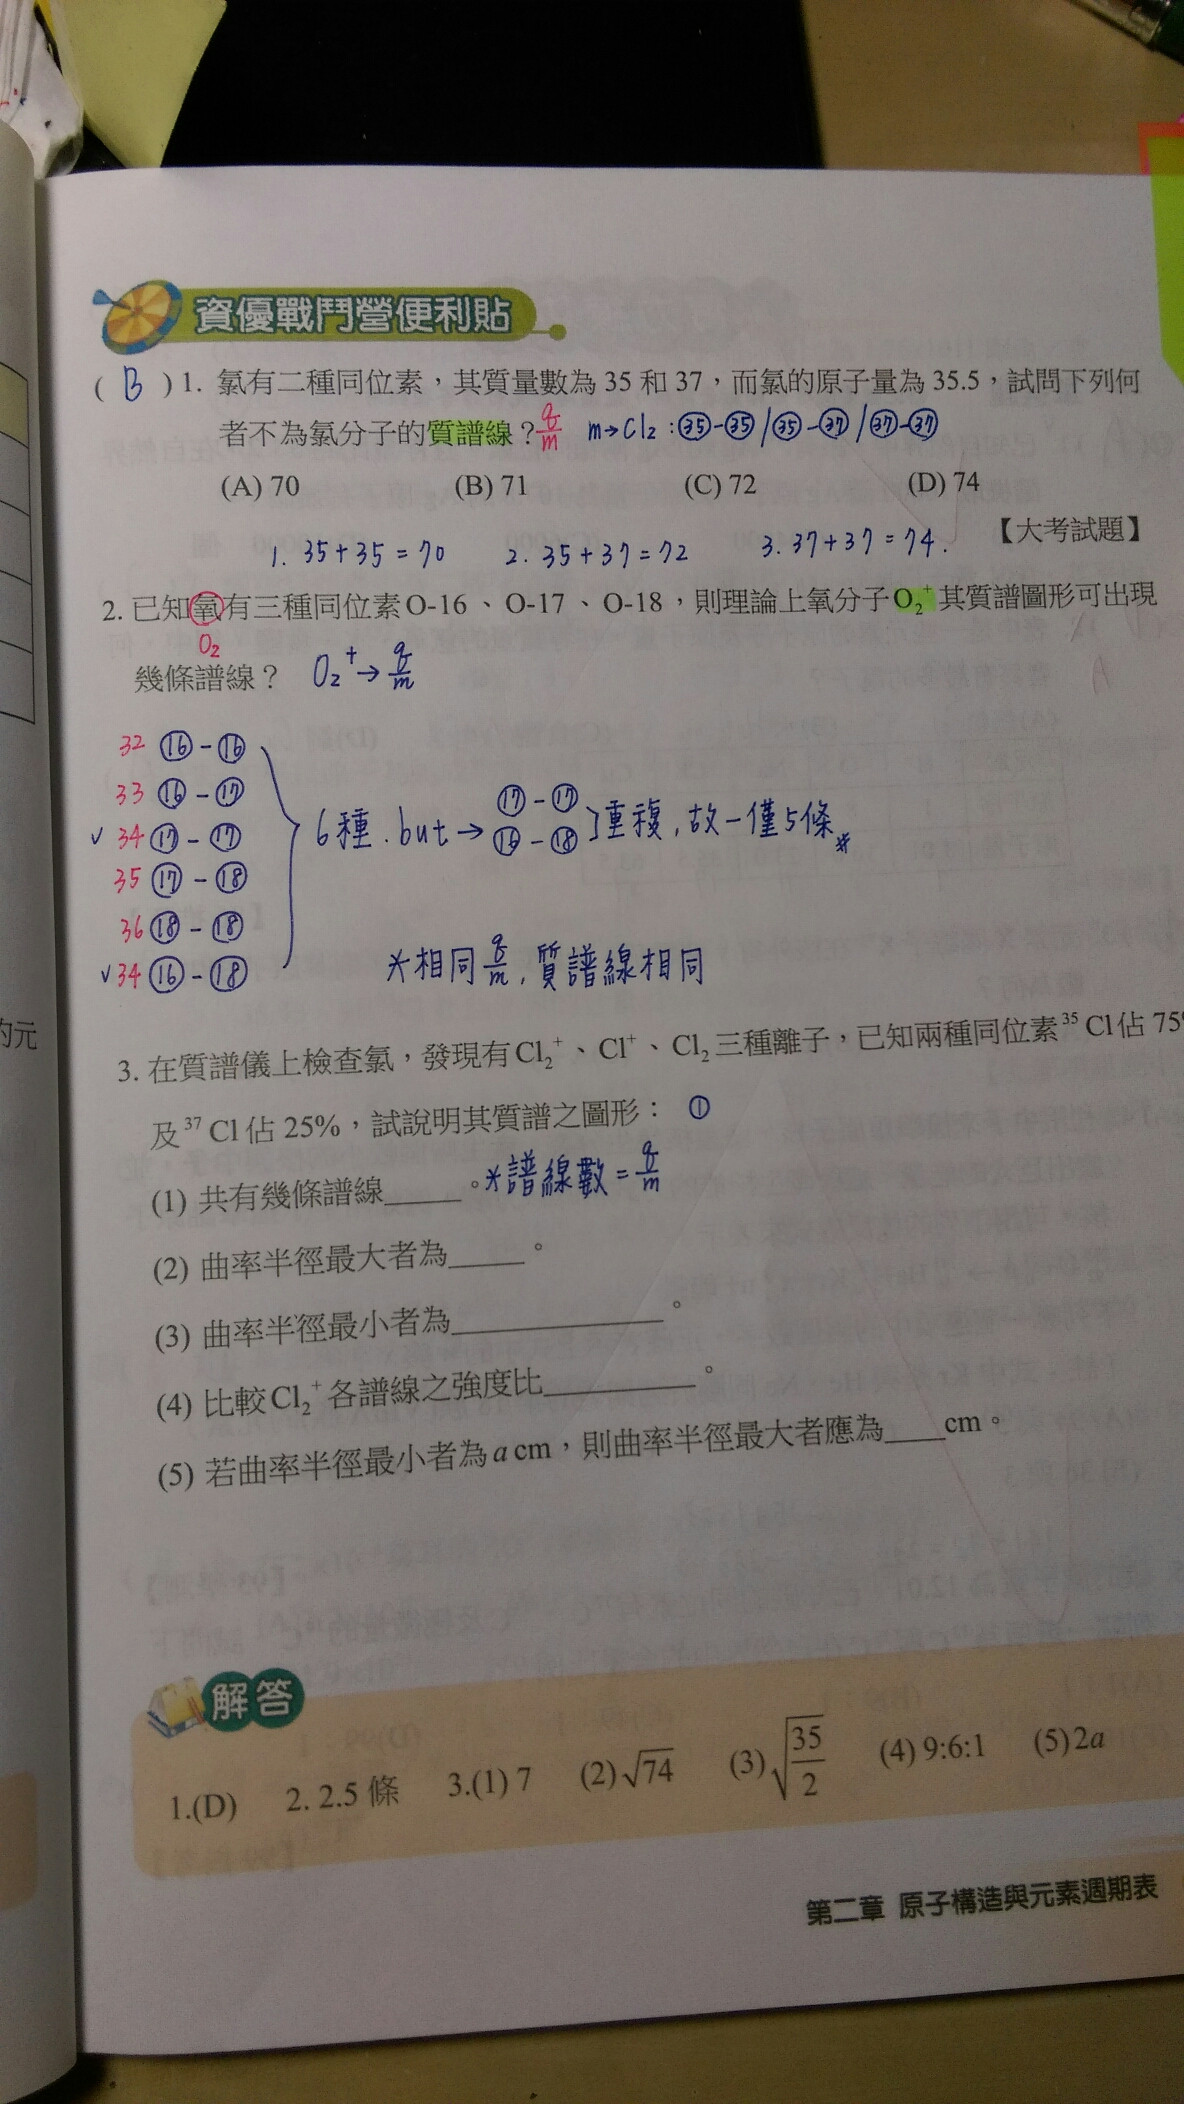 資優戰鬥營便利貼
( B ) 1. 氯有二種同位素，其質量數為 35 和 37，而氯的原子量為 35.5，試問下列何
者不為氯分子的質譜線？ q/m m→Cl₂：㉟-㉟/㉟-㊲/㊲-㊲
(A) 70 (B) 71 (C) 72 (D) 74
【大考試題】
1. 35+35=70 2. 35+37=72 3. 37+37=74.
2. 已知氧有三種同位素O-16、O-17、O-18，則理論上氧分子O₂⁺其質譜圖形可出現
O₂
幾條譜線？ O₂⁺→q/m
32 ⑯-⑯
33 ⑯-⑰
✓ 34 ⑰-⑰
35 ⑰-⑱
36 ⑱-⑱
✓ 34 ⑯-⑱
6種.but→ ⑰-⑰ ⑯-⑱ ]重複,故一僅5條*
*相同q/m,質譜線相同
3. 在質譜儀上檢查氯，發現有Cl₂⁺、Cl⁺、Cl₂三種離子，已知兩種同位素³⁵Cl佔 75%
及³⁷Cl佔 25%，試說明其質譜之圖形： ①
(1) 共有幾條譜線_____。*譜線數=q/m
(2) 曲率半徑最大者為_____。
(3) 曲率半徑最小者為_____________。
(4) 比較Cl₂⁺各譜線之強度比__________。
(5) 若曲率半徑最小者為a cm，則曲率半徑最大者應為____cm。
解答
1.(D) 2. 2.5 條 3.(1) 7 (2)√74 (3)√(35/2) (4) 9:6:1 (5)2a
第二章 原子構造與元素週期表
的元